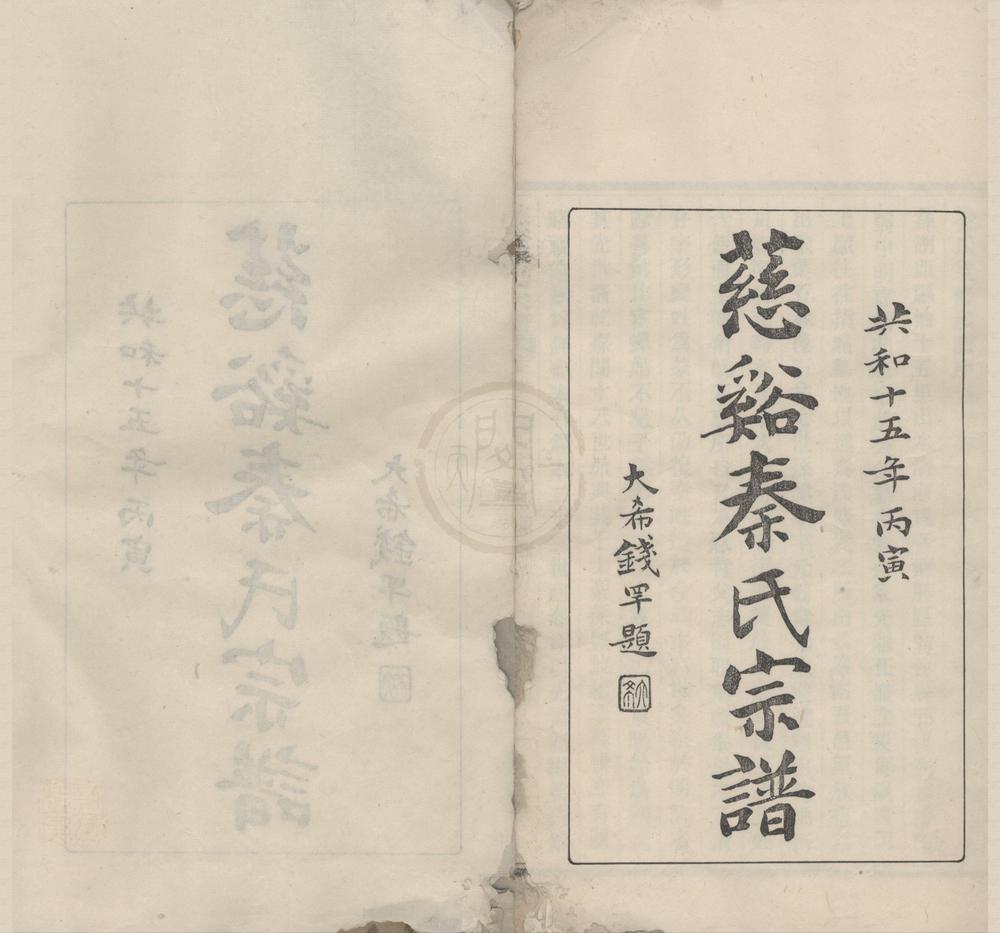 共和十五年丙寅
慈谿秦氏宗譜
大希錢罕題